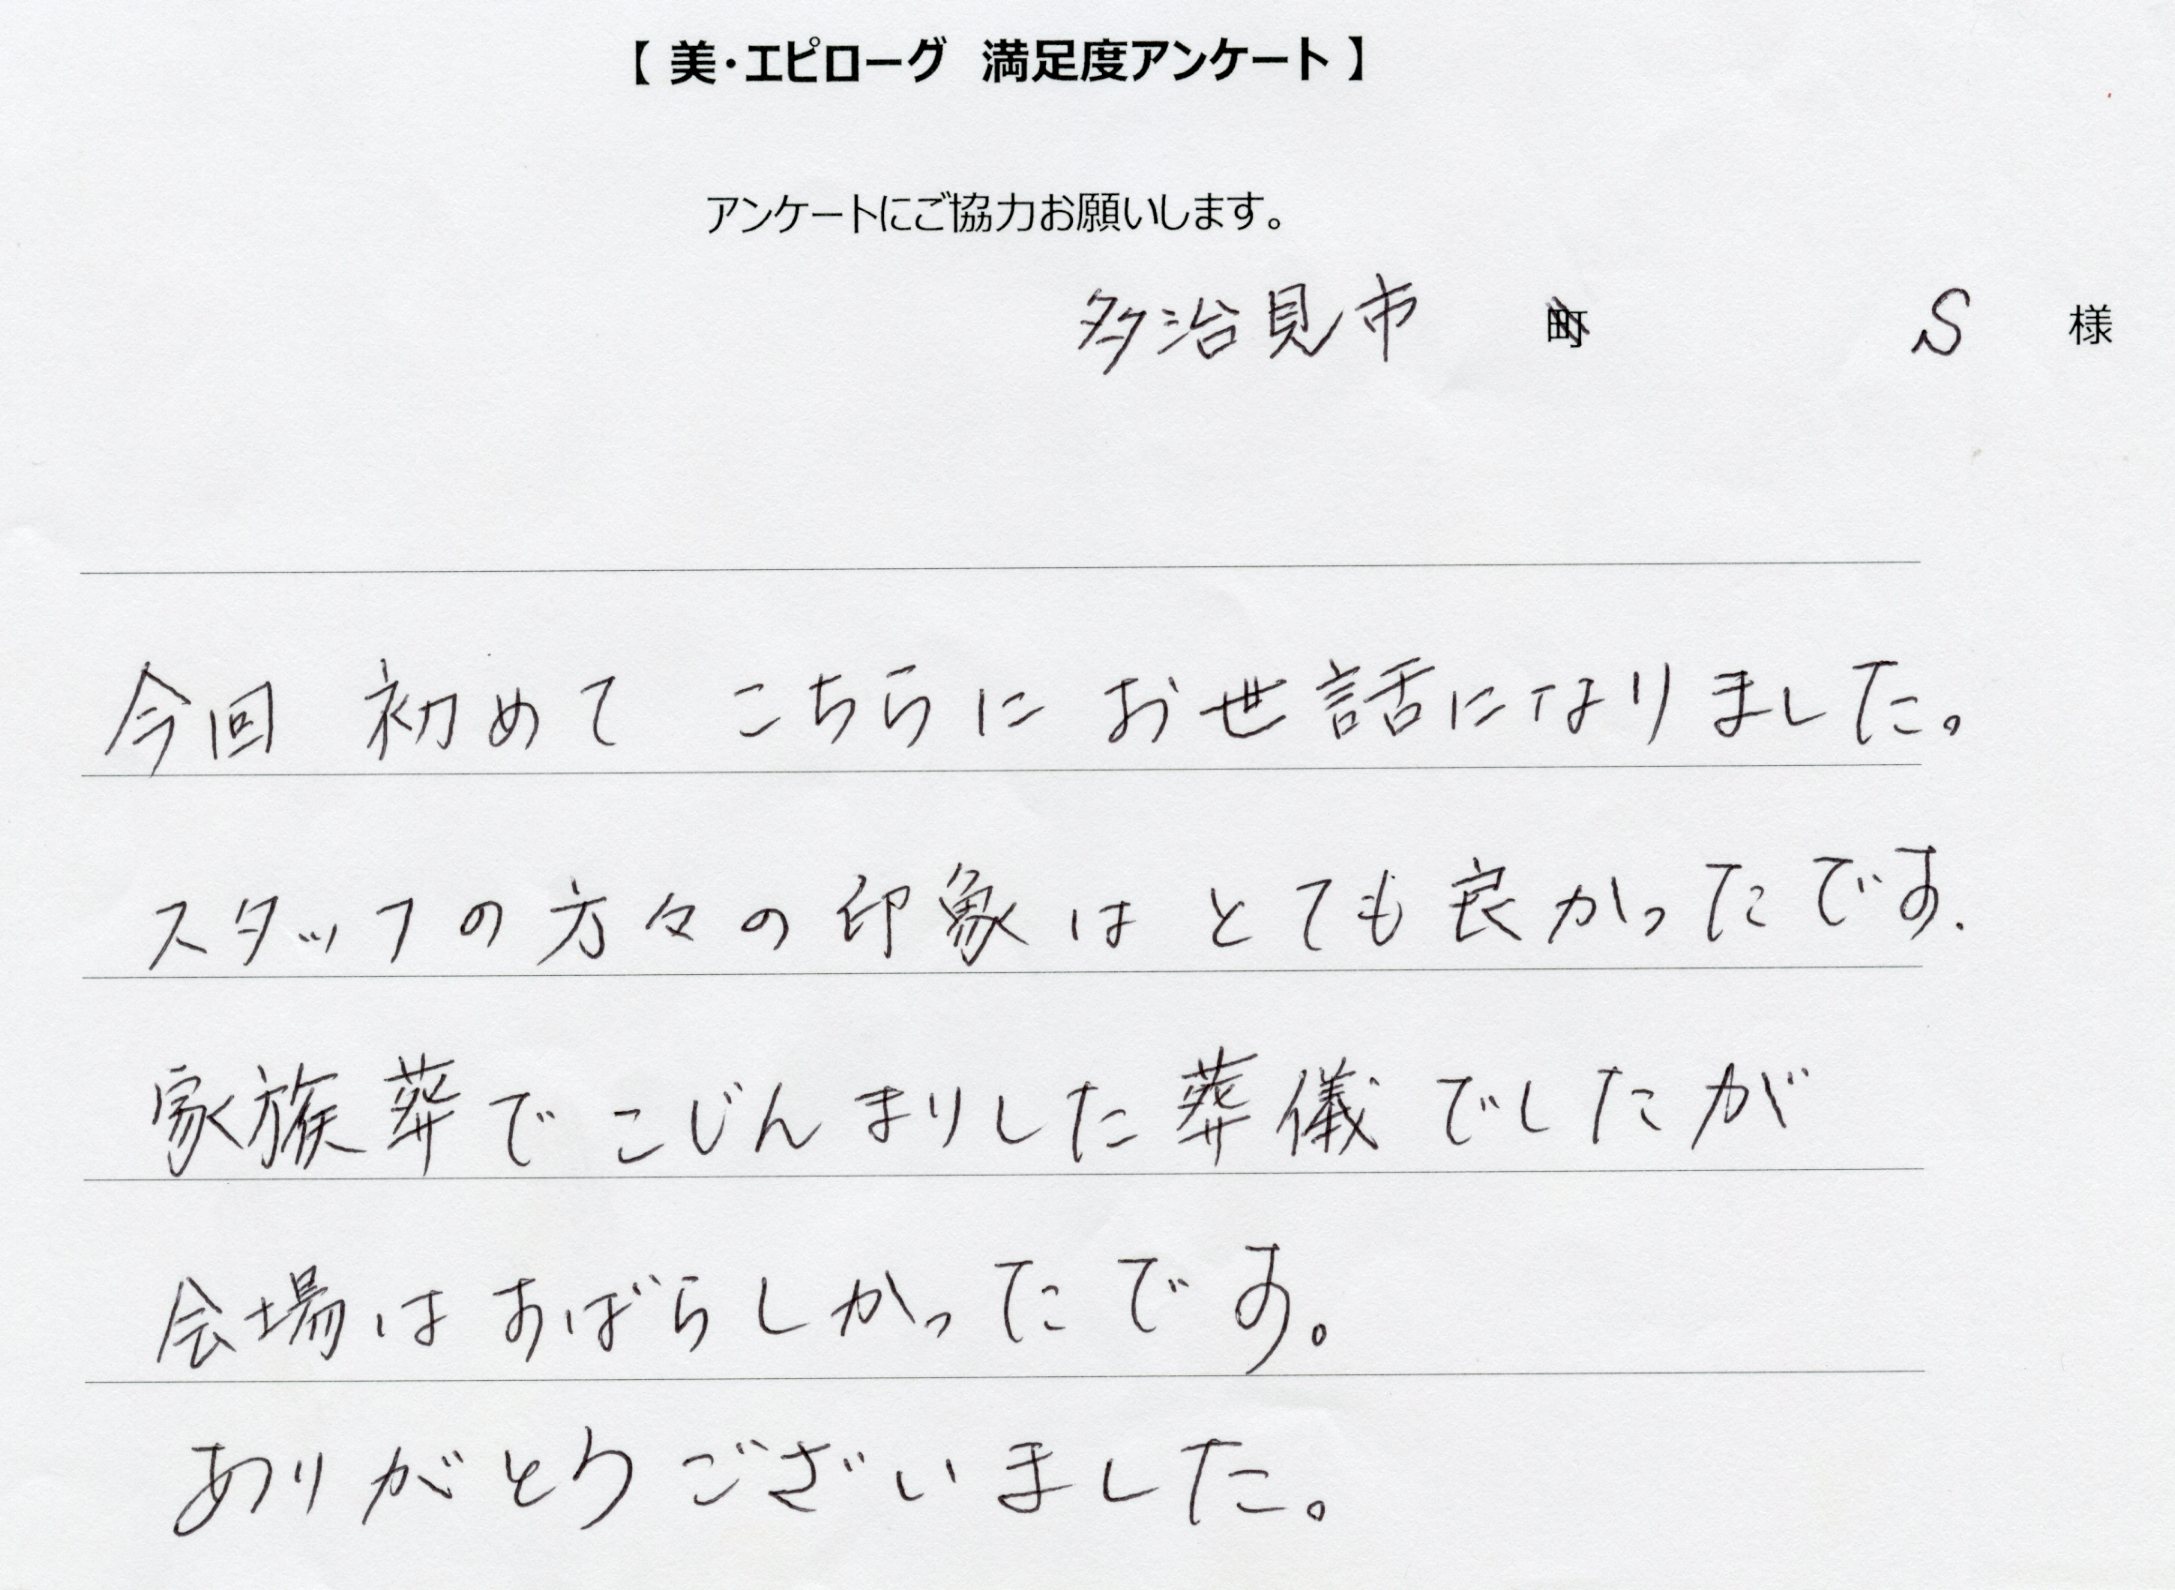 【 美・エピローグ 満足度アンケート 】
アンケートにご協力お願いします。
多治見市 町 S 様
今回 初めて こちらに お世話になりました。
スタッフの方々の印象は とても良かったです.
家族葬でこじんまりした葬儀でしたが
会場はすばらしかったです。
ありがとうございました。